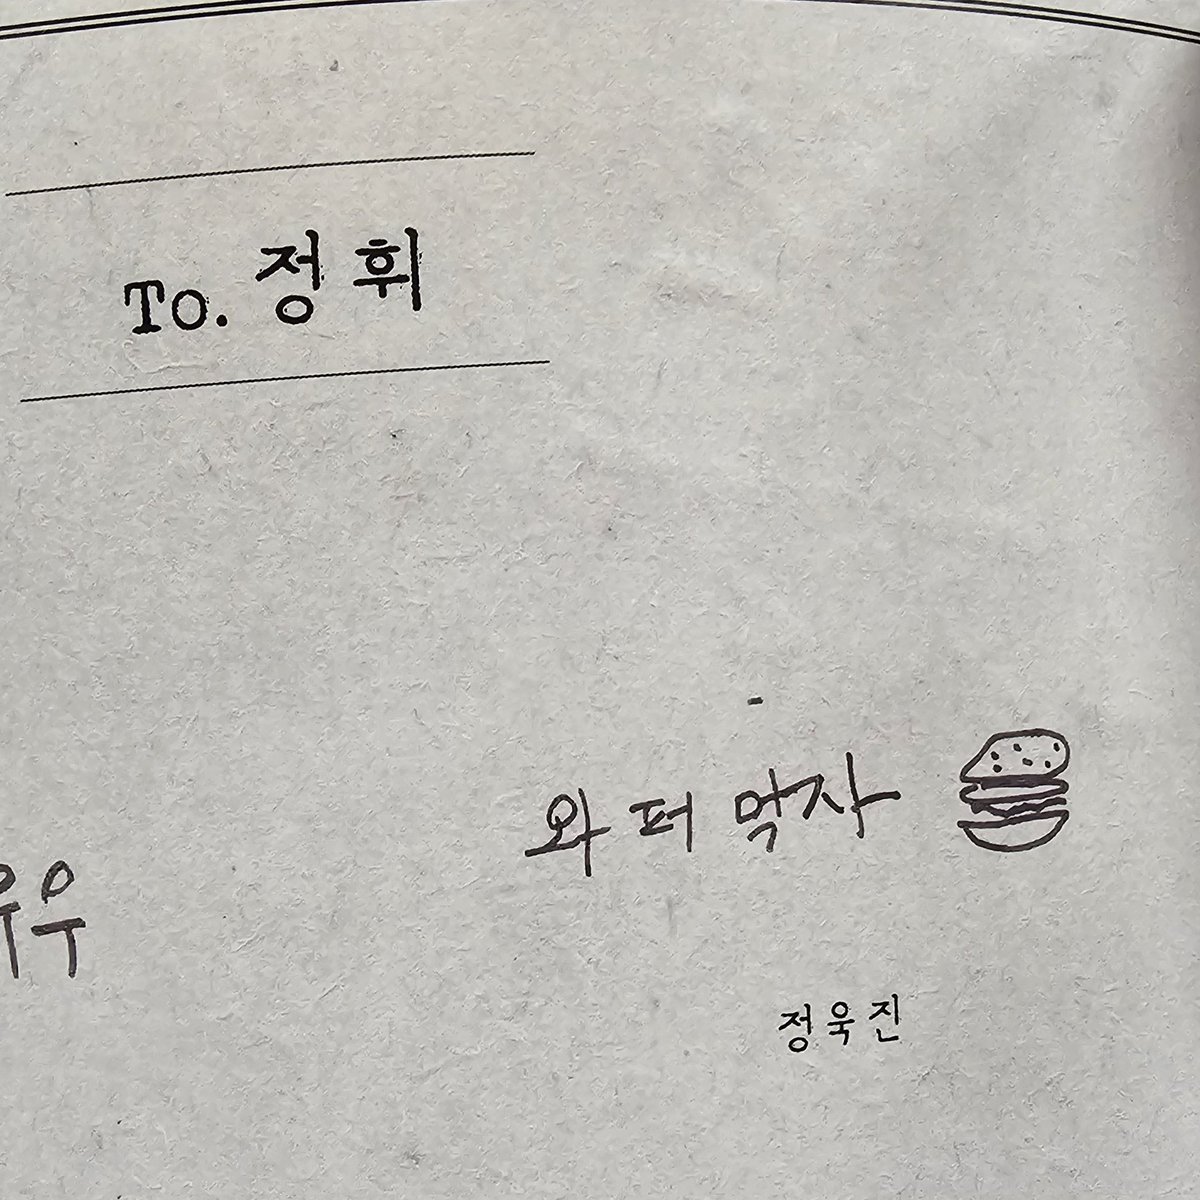 To. 정휘
와퍼 먹자
우우
정욱진